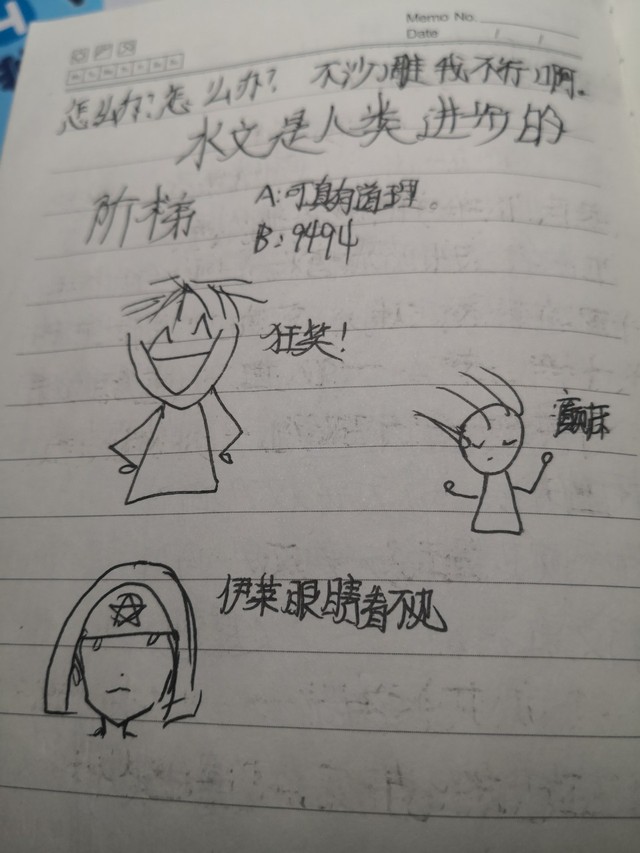 Memo No.
Date
怎么办?怎么办? 不沙雕我不行啊。
水文是人类进步的
阶梯
A:可真有道理。
B:9494
狂笑!
伊莱眼睛看不见